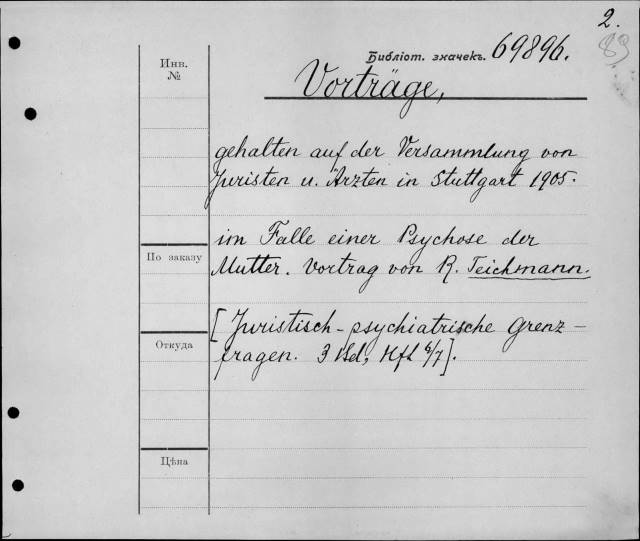 2.
89
Библіот. значекъ. 69896.
Инв.
№
Vorträge,
gehalten auf der Versammlung von
Juristen u. Ärzten in Stuttgart 1905.
im Falle einer Psychose der
По заказу
Mutter. Vortrag von R. Teichmann.
[Juristisch-psychiatrische Grenz-
Откуда
fragen. 3 Bd, Hft 6/7].
Цѣна